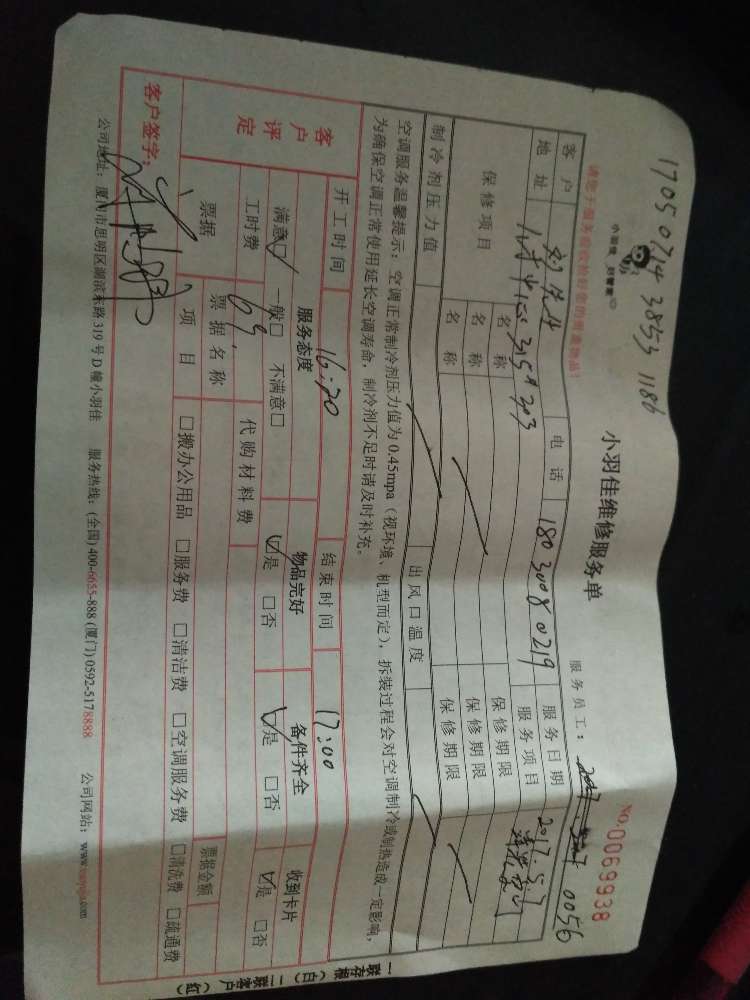 1705 0714 3853 1186
小羽佳 好管家
小羽佳维修服务单
NO.0069938
请您于服务前收拾好您的贵重物品!
服务员工: 0056
客户 电话 180 3008 0219 服务日期 2017.5.7
地址 服务项目
保修项目 名称 保修期限
名称 保修期限
名称 保修期限
制冷剂压力值 出风口温度
空调服务温馨提示:空调正常制冷剂压力值为0.45mpa(视环境、机型而定),拆装过程会对空调制冷或制热造成一定影响,
为确保空调正常使用延长空调寿命,制冷剂不足时请及时补充。
开工时间 16:20 结束时间 17:00
客户评定
服务态度 物品完好 备件齐全 收到卡片
满意☑ 一般□ 不满意□ ☑是 □否 ☑是 □否 ☑是 □否
工时费 69. 代购材料费
票据 票据名称 票据金额
项目 □搬办公用品 □服务费 □清洁费 □空调服务费 □清洗费 □疏通费
客户签字:
公司地址:厦门市思明区湖滨东路319号D幢小羽佳 服务热线:(全国)400-6655-888 (厦门)0592-5178888 公司网站:www.xiaoyujia.com
一联存根(白) 二联客户(红)